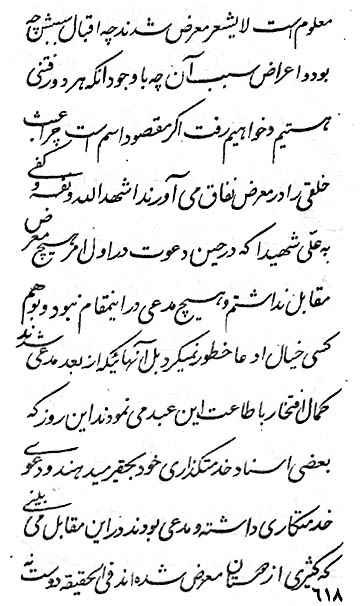 معلوم است لایشعر معرض شدند چه اقبال سببش چه
بود و اعراض سبب آن چه با وجود آنکه هر دو رفتنی
هستیم و خواهیم رفت اگر مقصود اسم است چرا عبث
خلقی را در معرض نفاق می آورند اشهد الله و نفسه و کفی
به علیّ شهیدا که در حین دعوت در اول امر هیچ معرض
مقابل نداشتم و هیچ مدعی در اینمقام نبود و بوهم
کسی خیال ادعا خطور نمیکرد بل آنهائیکه از بعد مدعی شدند
کمال افتخار باطاعت این عبد می نمودند این روز که
بعضی اسناد خدمتگذاری خود بحقیر میدهند و دعوی
خدمتکاری داشته و مدعی بودند در این مقابل می بینی
که کثیری از همستان معرض شده اند فی الحقیقه دوست نه
٦١٨